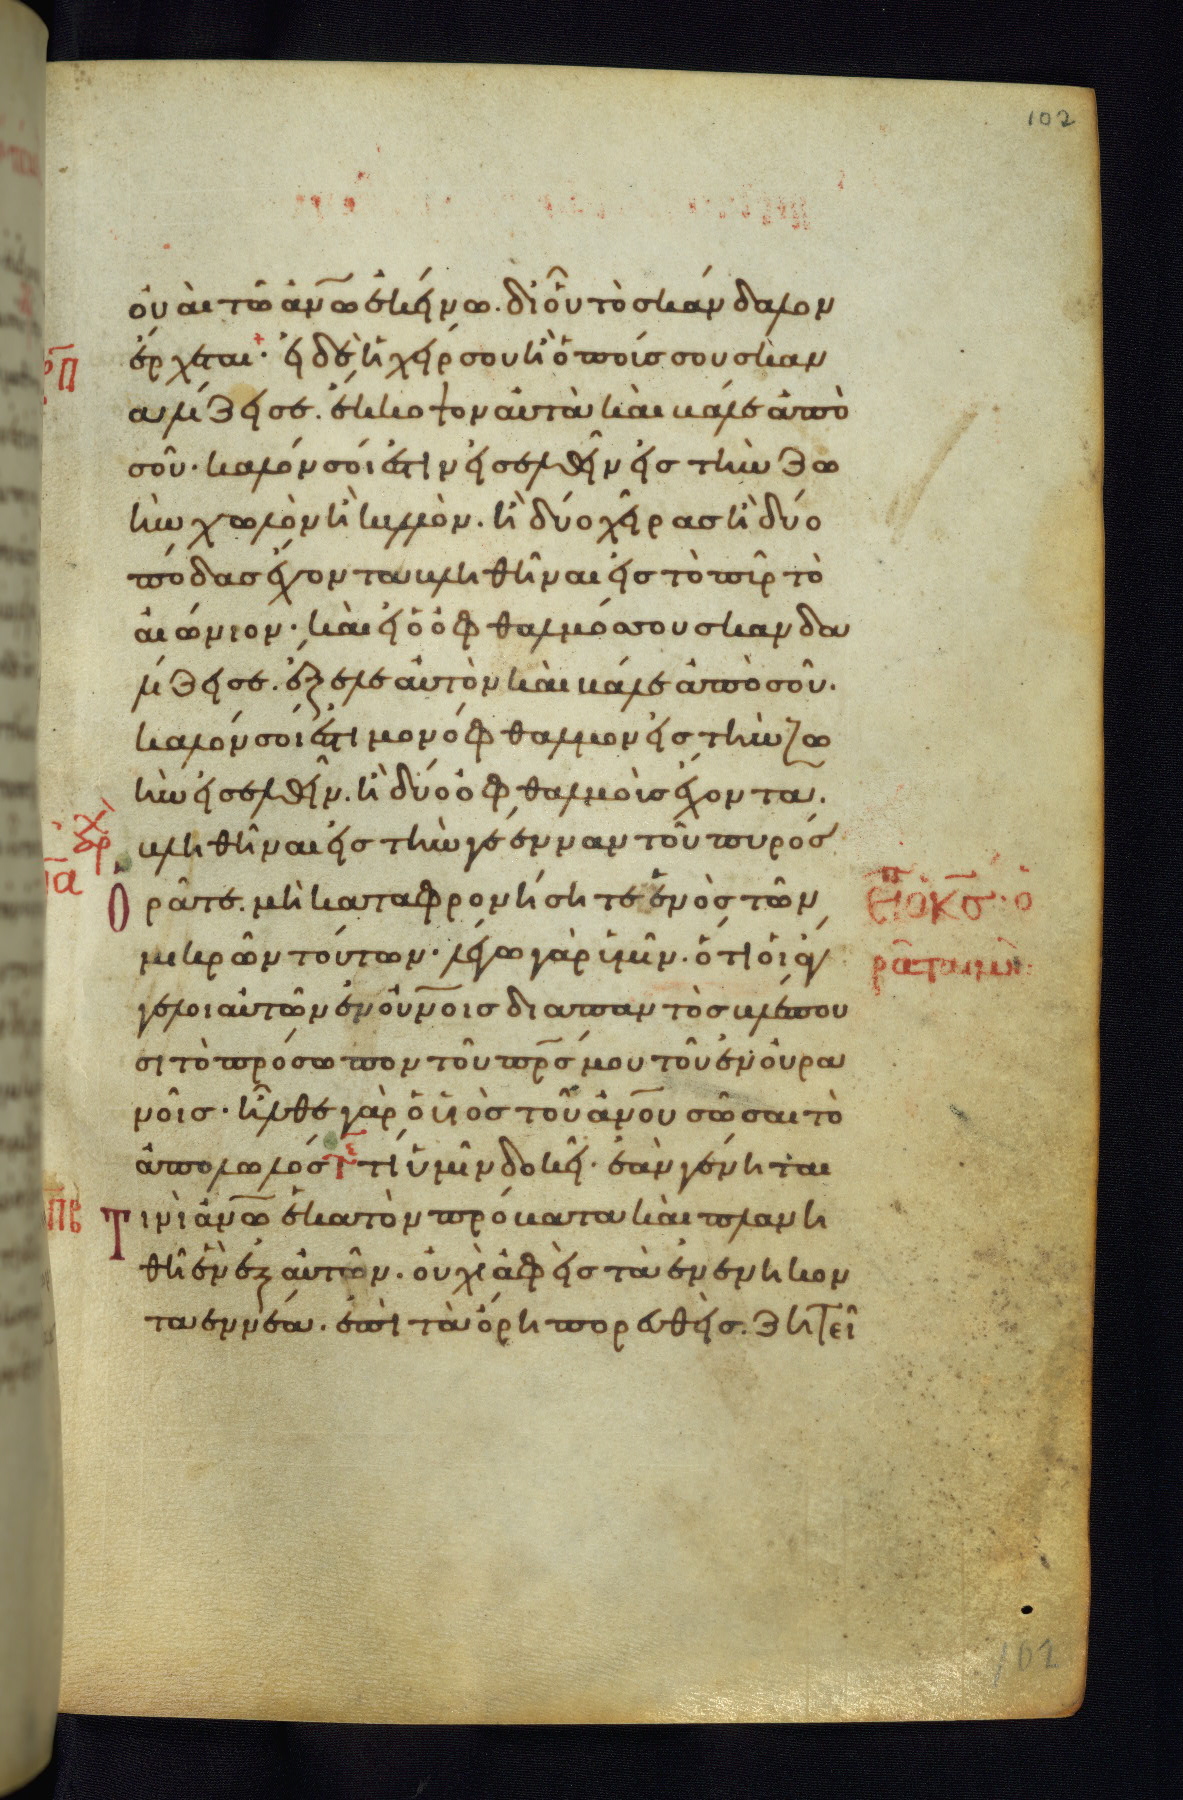 102
ὀυὰι τῶ ἀν̅ω ἐκείνω. δἰ οὗ τὸ σκάνδαλον
ἔρχεται. εἰ δὲ ἡ χείρ σου ἢ ὁ πούς σου σκαν
δαλίζει σε. ἔκκοψον αὐτὰ καὶ βάλε ἀπὸ
σοῦ. καλόν σοί ἐστιν εἰσελθεῖν εἰς τὴν ζω
ὴν χωλὸν ἢ κυλλὸν. ἢ δύο χεῖρας ἢ δύο
πόδας ἔχοντα βληθῆναι εἰς τὸ πῦρ τὸ
αἰώνιον. καὶ εἰ ὁ ὀφθαλμός σου σκανδα
λίζει σε. ἔξελε αὐτὸν καὶ βάλε ἀπὸ σοῦ.
καλόν σοί ἐστι μονόφθαλμον εἰς τὴν ζω
ὴν εἰσελθεῖν. ἢ δύο ὀφθαλμοὺς ἔχοντα.
βληθῆναι εἰς τὴν γέενναν τοῦ πυρός
Ὁρᾶτε. μὴ καταφρονήσητε ἑνὸς τῶν
μικρῶν τούτων. λέγω γὰρ ὑμῖν. ὅτι οἱ ἄγ
γελοι αὐτῶν ἐν οὐν̅οις διαπαντὸς βλέπου
σι τὸ πρόσωπον τοῦ πρ̅ς μου τοῦ ἐν οὐρα
νοῖς. ἦλθε γὰρ ὁ υἱὸς τοῦ ἀν̅ου σῶσαι τὸ
ἀπολωλός τί ὑμῖν δοκεῖ. ἐὰν γένηται
Τινὶ ἀν̅ω ἑκατὸν πρόβατα καὶ πλανη
θῆ ἓν ἐξ αὐτῶν. οὐχὶ ἀφεὶς τὰ ἐνενηκον
ταεννέα. ἐπὶ τὰ ὄρη πορευθεὶς. ζητεῖ
ΠΒ